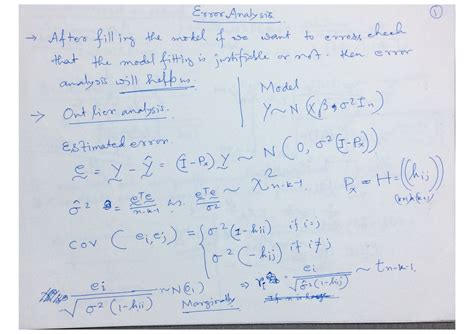 Error Analysis
1
→ After filling the model if we want to cross check
that the model fitting is justifiable or not. then error
analysis will help us.
→ Outlier analysis.
Model
Y ~ N(Xβ, σ²Iₙ)
Estimated error.
e = Y - Ŷ = (I-Pₓ)Y ~ N(0, σ²(I-Pₓ))
σ̂² = eᵀe/n-k-1 eᵀe/σ² ~ χ²n-k-1
Pₓ = H = ((hij))
cov(ei, ej) = { σ²(1-hii) if i=j
σ²(-hij) if i≠j
ei/√σ²(1-hii) ~ N(0,1) Marginally ⇒ ri = ei/√σ̂²(1-hii) ~ tn-k-1